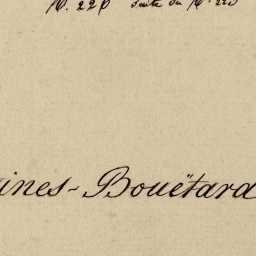 N. 226 suite du N° 225
ines-Bouëtard